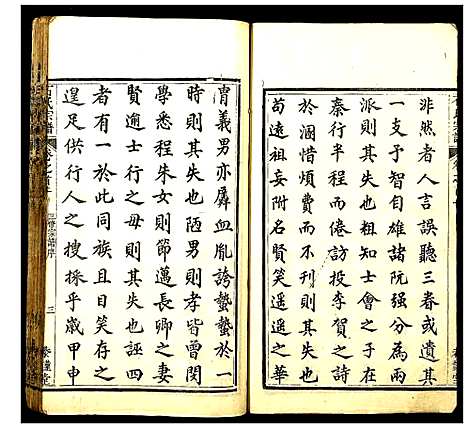 非然者人言誤聽三春或遺其
一支子智自雄諸阮强分為兩
派則其失也粗知士會之子於
秦行半程而倦訪投李賀之詩
於溷惜煩費而不刊則其失也
苟遠祖妄附名賢笑遥遥之華
胄義男亦孱血胤誇蟄蟄於一
時則其失也陋男則孝皆曾閔
學悉程朱女則節邁長卿之妻
賢逾士行之母則其失也誣四
者有一於此同宗目笑存之
遑足供行人之捜採乎歲甲申
石氏宗譜
卷之首
三修宗譜序
三